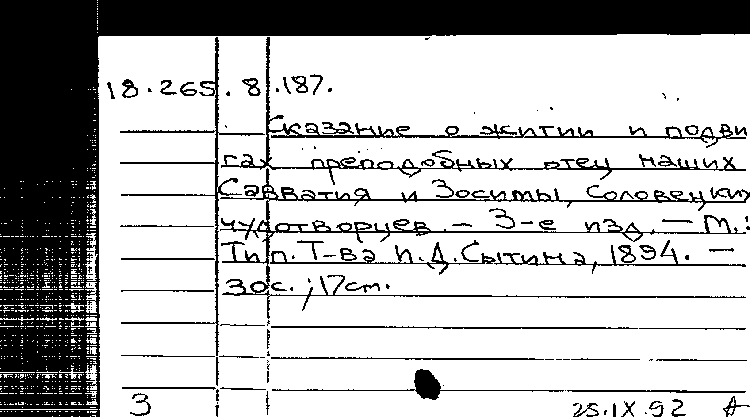 18.265.8.187.
Сказание о житии и подви
гах преподобных отец наших
Савватия и Зосимы, Соловецких
чудотворцев. – 3-е изд. – М.:
Тип. Т-ва И.Д.Сытина, 1894. –
30с.; 17см.
3 25.IX.92